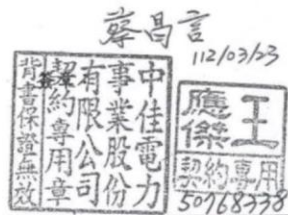 蔡昌言
112/03/23
中佳電力
事業股份
有限公司
契約專用章
背書保證無效
王
應傑
契約專用
50768338